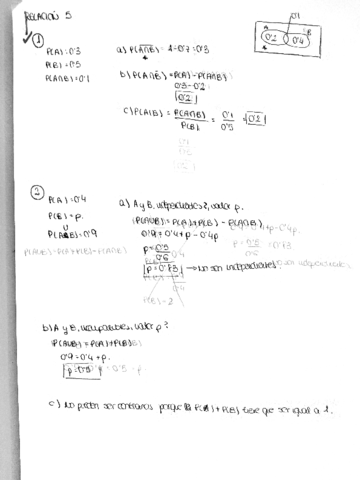 RELACIÓN 5
①
P(A)=0'3
P(B)=0'5
P(A∩B)=0'1
a) P(A∩B)= 1-0'7=0'3
b) P(A∩B)=P(A)-P(A∩B)
0'3-0'2
0'2
c) P(A|B) = P(A∩B) / P(B) = 0'1 / 0'5 = 0'2
0'1
0'2 0'4
②
P(A)=0'4
P(B)=p.
P(A∪B)=0'9
a) A y B, independientes?, valor p.
P(A∪B)=P(A)+P(B)-P(A∩B)
0'9=0'4+p-0'4p
p=0'5/0'6
p=0'83 → No son independientes
b) A y B, incompatibles, valor p?
P(A∪B)=P(A)+P(B)
0'9=0'4+p.
p=0'5
c) No pueden ser contrarios porque P(A)+P(B) tiene que ser igual a 1.